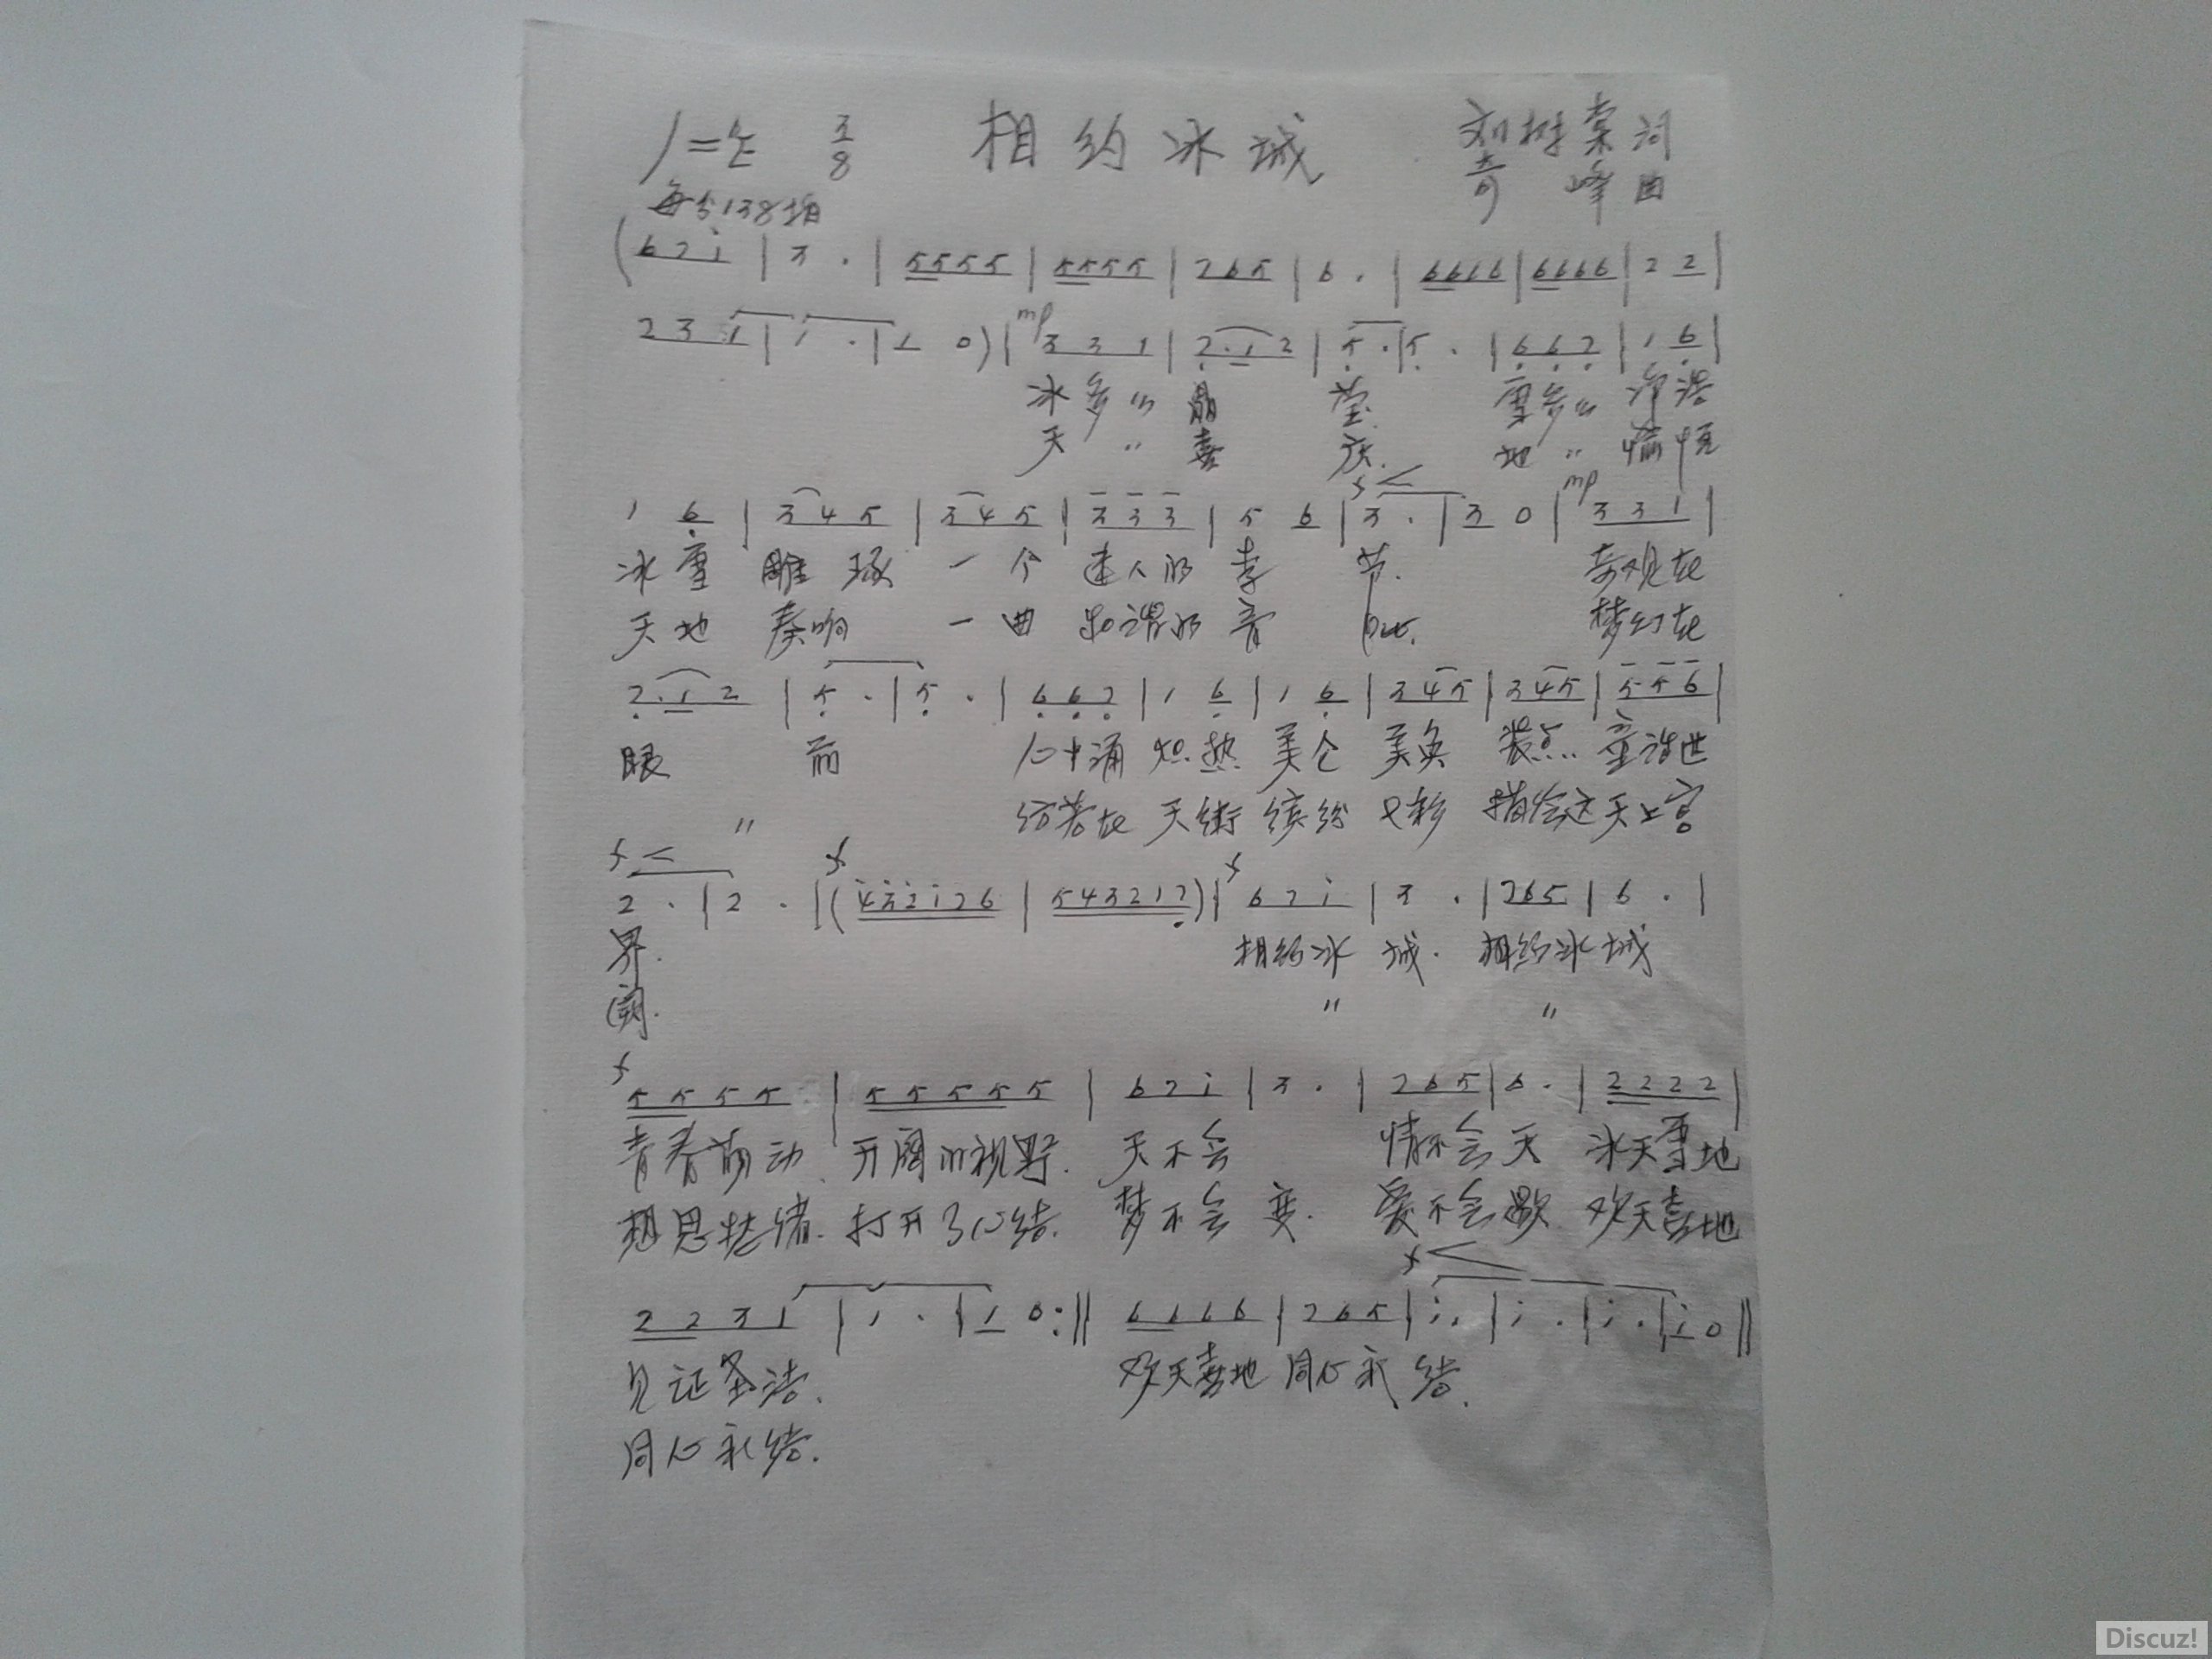 1=E 3/8 相约冰城 刘树棠词
每分138拍 奇峰曲
(6 7 i | 3 · | 5 5 5 5 | 5 5 5 5 | 7 6 5 | 6 · | 6 6 6 6 | 6 6 6 6 | 2 2 |
2 3 1 | 1 · | 1 0 ) | mp 3 3 1 | 2 · 1 2 | 5 · | 5 · | 6 6 7 | 1 6 |
冰多〃 晶 莹. 雪多〃 净洁
天 〃 喜 庆. 地 〃 愉悦
1 6 | 3 4 5 | 3 4 5 | 3 3 3 | 5 6 | f 3 · | 3 0 | mp 3 3 1 |
冰雪 雕琢 一个 迷人的季 节. 奇观在
天地 奏响 一曲 和谐的音 奇幻在
2 · 1 2 | 5 · | 5 · | 6 6 7 | 1 6 | 1 6 | 3 4 5 | 3 4 5 | 5 5 6 |
眼 前 心中涌 炽热 美仑 美奂 装点.. 童话世
〃 仿若在 天街 缤纷 七彩 描绘这 天上宫
f 2 · | 2 · | f ( 4 3 2 i 7 6 | 5 4 3 2 1 7 ) | f 6 7 i | 3 · | 7 6 5 | 6 · |
界. 相约冰 城. 相约冰城
阙. 〃 〃
f 5 5 5 5 | 5 5 5 5 5 | 6 7 i | 3 · | 7 6 5 | 6 · | 2 2 2 2 |
青春萌动 开阔的视野. 天不会 情不会灭 冰天雪地
愁绪. 打开了心结. 梦不会 变. 爱不会歇 欢天喜地
2 2 3 1 | 1 · | 1 0 :‖ 6 6 6 6 | 7 6 5 | f i · | i · | i · | i 0 ‖
见证圣洁. 欢天喜地 同心永 结.
同心永结.
Discuz!